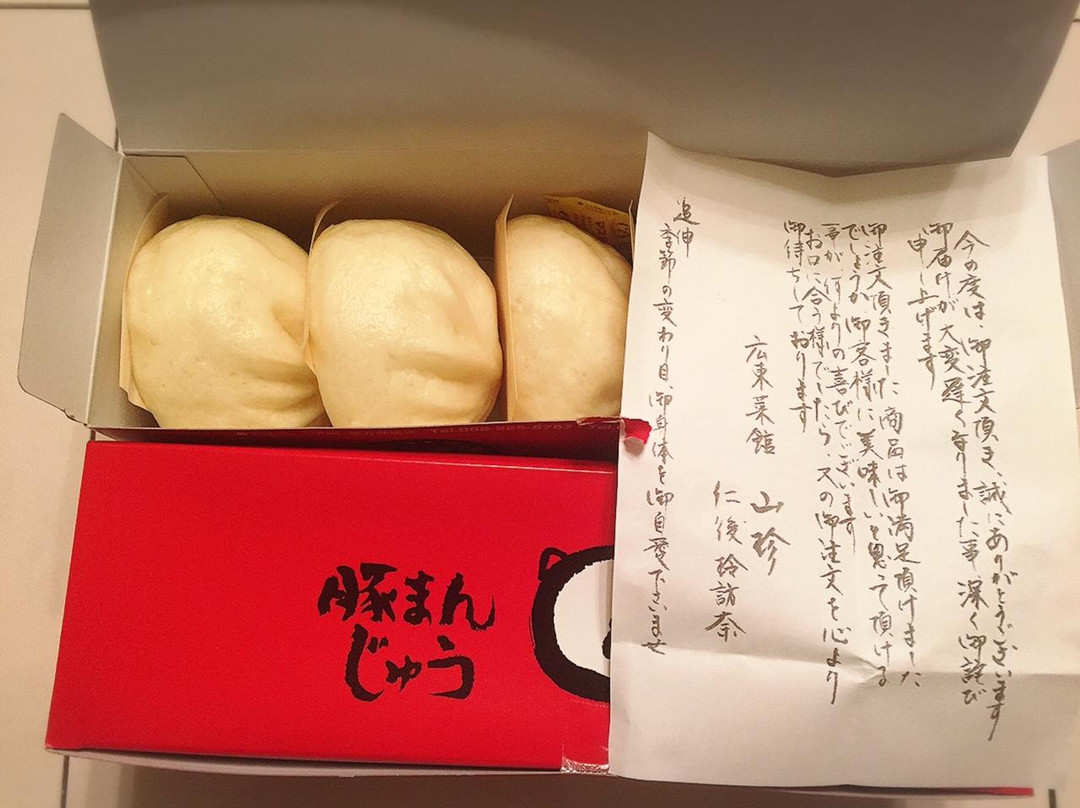 今の度は、御注文頂き、誠にありがとうございます
御届けが大変遅くなりました事、深く御詫び
申し上げます
御注文頂きました商品は御満足頂けました
でしょうか 御客様に美味しいと思って頂ける
事が何よりの喜びでございます
お口に合う様でしたら、又の御注文を心より
御待ちしております
広東菜館 山珍
追伸
季節の変わり目、御身体を御自愛下さいませ
豚まん
じゅう